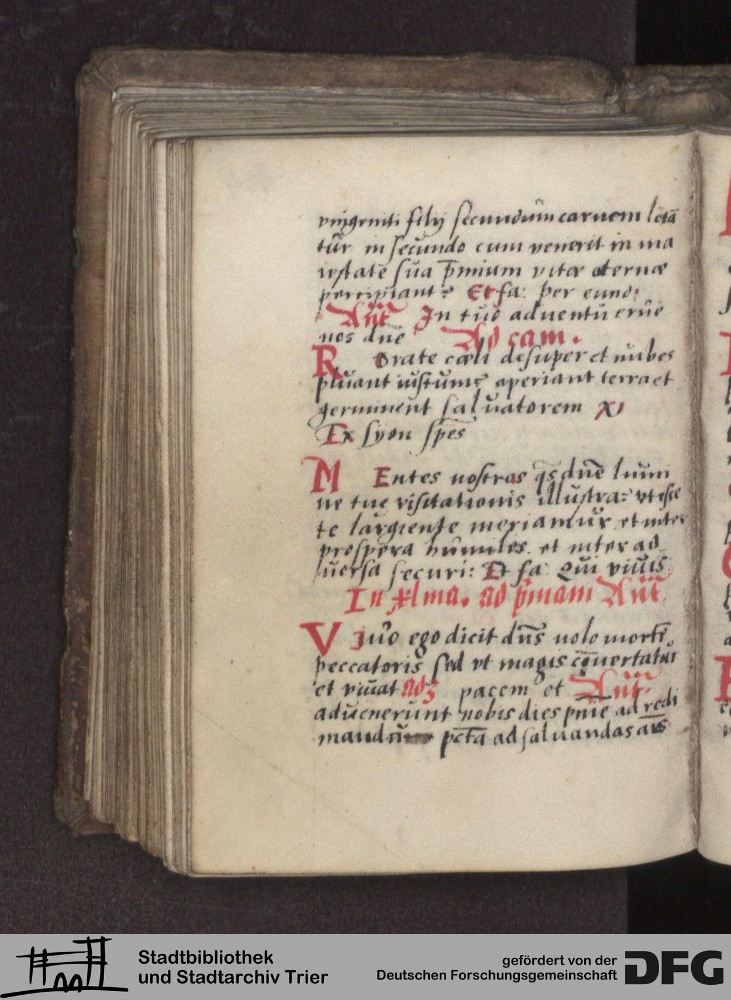 vnigeniti filij secundum carnem letā
tur in secundo cum venerit in ma
iestate sua p̄mium vitæ æternæ
percipiant: Et fa: per eund:
Ant̄ In tuo adventu erue
nos dn̄e Ad cam.
Rorate cæli desuper et nubes
pluant iustum: aperiant terra et
germinent salvatorem
Ex syon spēs
MEntes nostras qs dn̄e lumi
ne tue visitationis illustra: vt esse
te largiente mereamur et inter
prospera humiles. et inter ad
uersa securi: Et fa: Qui viuis
In xlma. ad p̄mam Ant̄
Viuo ego dicit dn̄s nolo mortē
peccatoris sed vt magis cōuertatur
et viuat pacem et Ant̄
aduenerunt nobis dies pnie ad redi
mandū pctā ad saluandas aīs
Stadtbibliothek
und Stadtarchiv Trier
gefördert von der
Deutschen Forschungsgemeinschaft
DFG